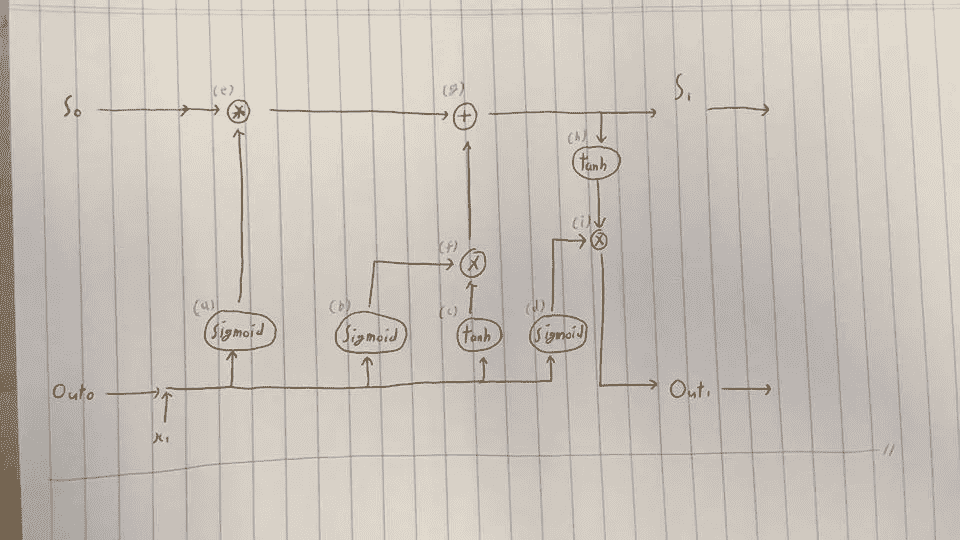 (e) (g)
S₀ * + S₁
(h)
tanh
(i)
(f) x
x
(a) (b) (c) (d)
Sigmoid Sigmoid tanh Sigmoid
Out₀ Out₁
x₁